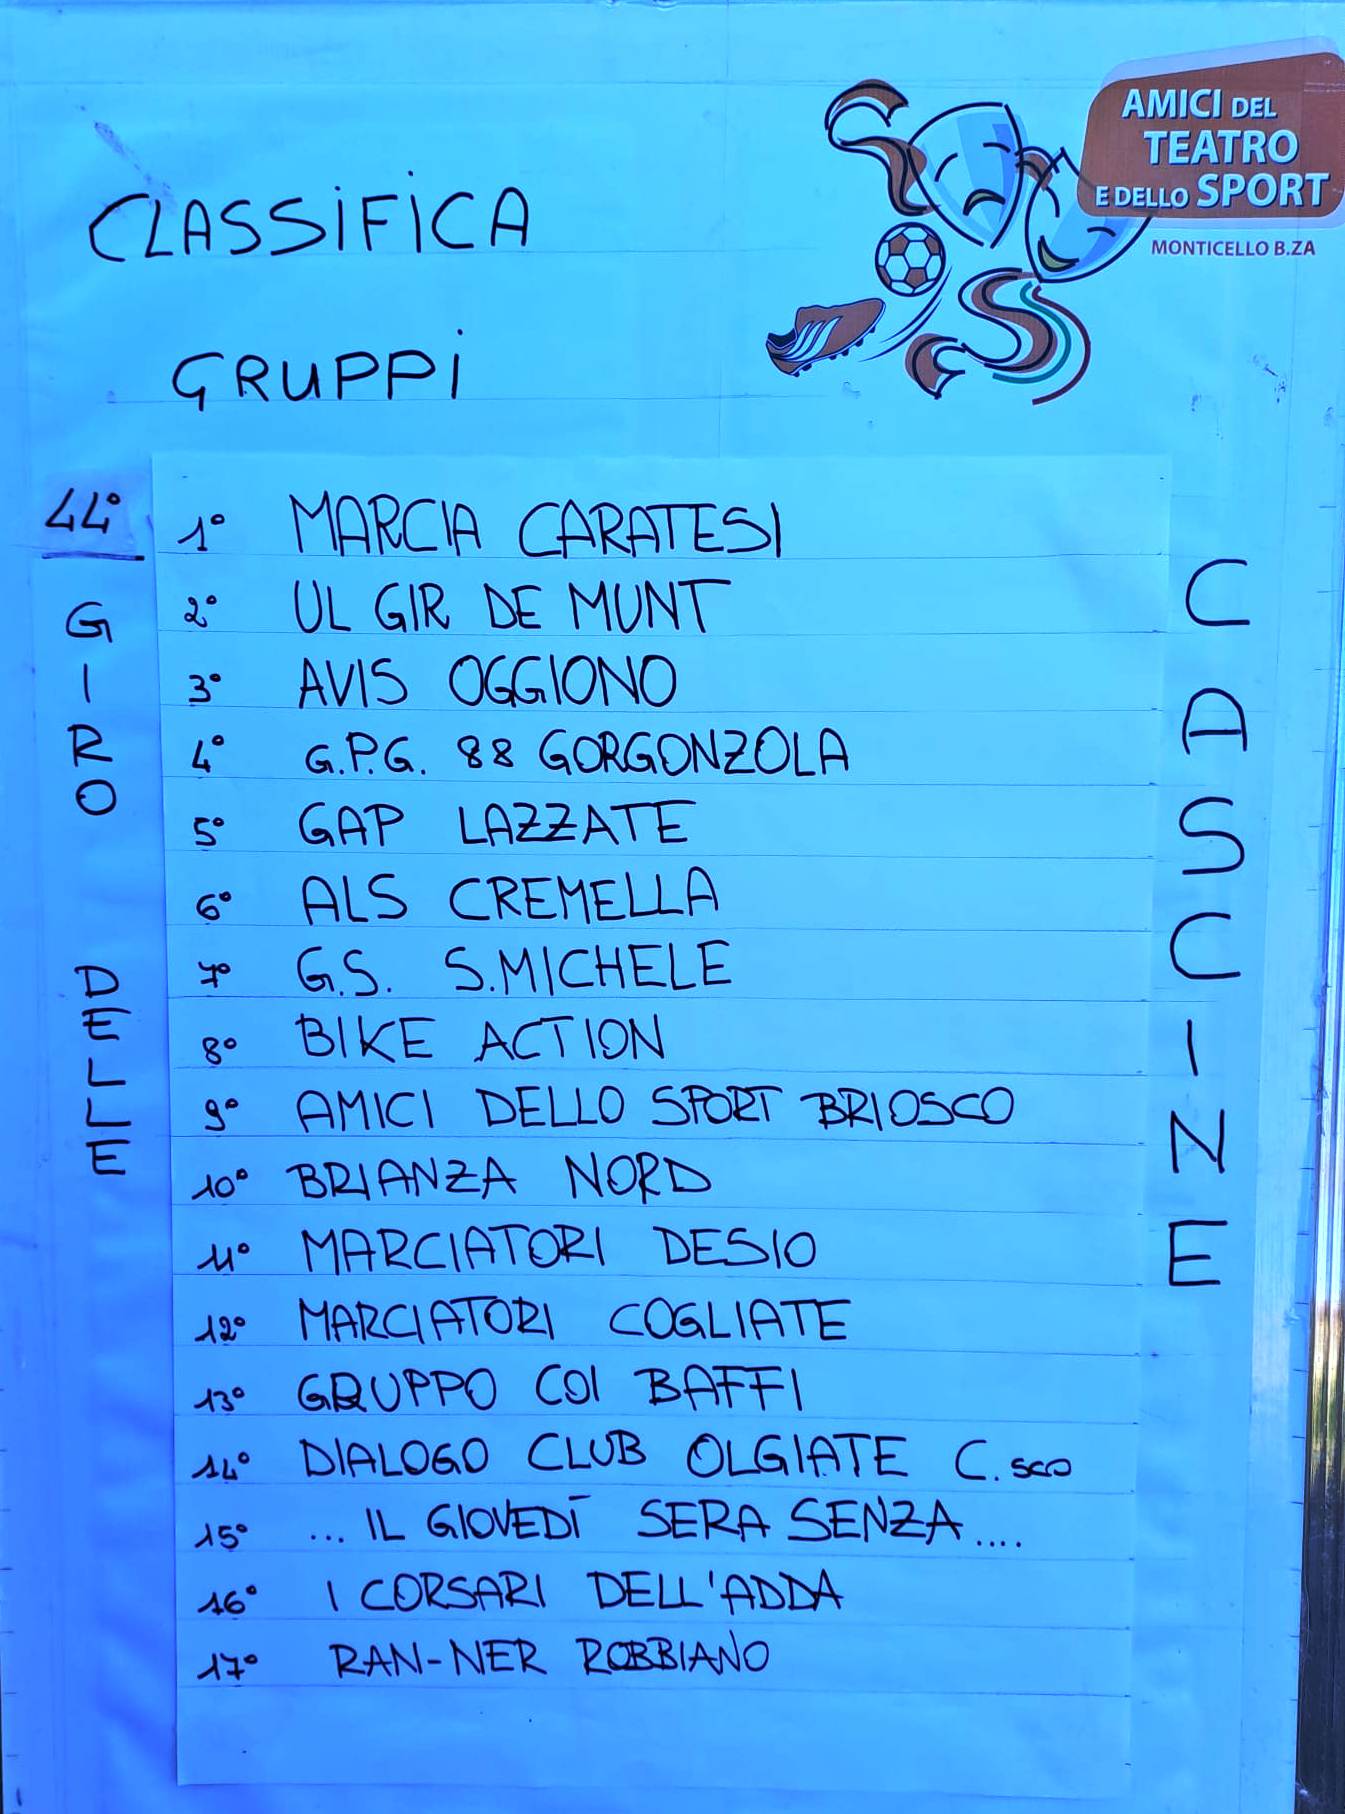 AMICI DEL
TEATRO
E DELLO SPORT
MONTICELLO B.ZA
CLASSIFICA
GRUPPI
44°
GIRO
DELLE
CASCINE
1° MARCIA CARATESI
2° UL GIR DE MUNT
3° AVIS OGGIONO
4° G.P.G. 88 GORGONZOLA
5° GAP LAZZATE
6° ALS CREMELLA
7° G.S. S.MICHELE
8° BIKE ACTION
9° AMICI DELLO SPORT BRIOSCO
10° BRIANZA NORD
11° MARCIATORI DESIO
12° MARCIATORI COGLIATE
13° GRUPPO COI BAFFI
14° DIALOGO CLUB OLGIATE C.sco
15° ... IL GIOVEDÌ SERA SENZA ....
16° I CORSARI DELL'ADDA
17° RAN-NER ROBBIANO